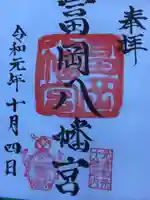 奉拝
富岡八幡宮
令和元年十月四日